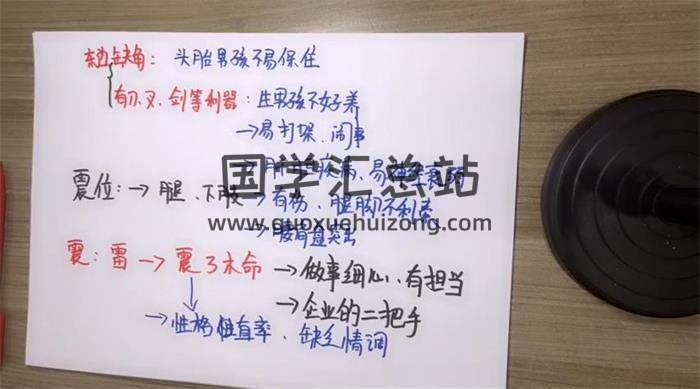 东边缺角：头胎男孩不易保住
有刀、叉、剑等利器：生男孩不好养
→易打架、闹事
国学汇总站
震位：→腿、下肢→有伤、腿脚不利索
www.guoxuehuizong.com
→腰椎盘突出
震：雷→震3木命→做事细心、有担当
→企业的二把手
→性格性直率、缺乏情调